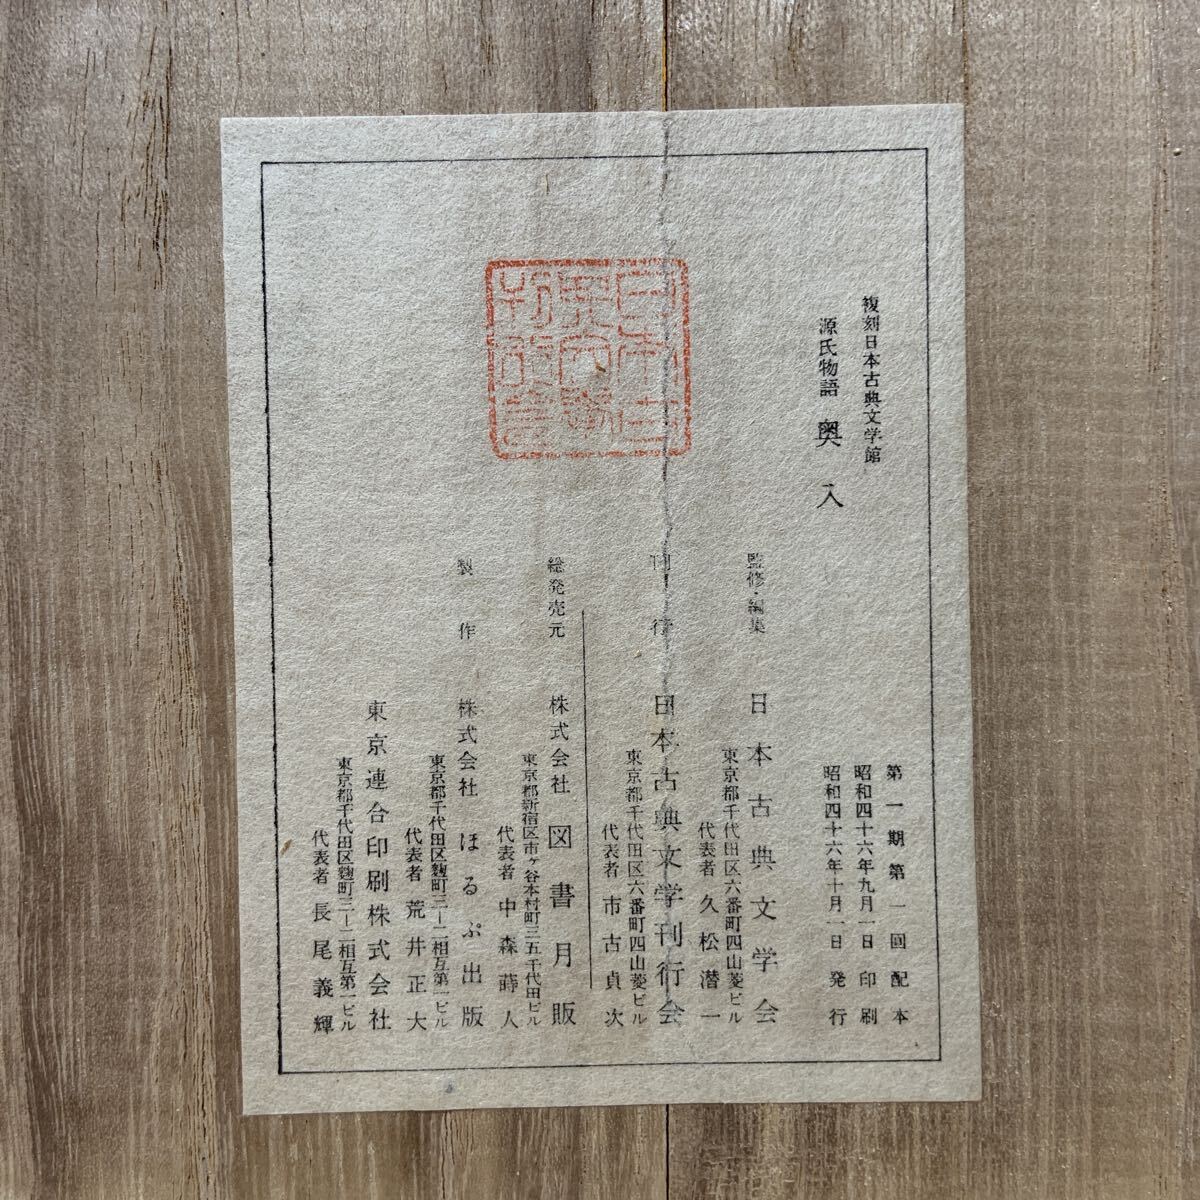 復刻日本古典文学館
源氏物語 奥入
第一期第一回配本
昭和四十六年九月一日印刷
昭和四十六年十月一日発行
監修・編集 日本古典文学会
東京都千代田区六番町四山菱ビル
代表者 久松潜一
刊行 日本古典文学刊行会
東京都千代田区六番町四山菱ビル
代表者 市古貞次
総発売元 株式会社 図書月販
東京都新宿区市ヶ谷本村町三五千代田ビル
代表者 中森蒔人
製作 株式会社 ほるぷ出版
東京都千代田区麹町三ー二相互第一ビル
代表者 荒井正大
東京連合印刷株式会社
東京都千代田区麹町三ー二相互第一ビル
代表者 長尾義輝